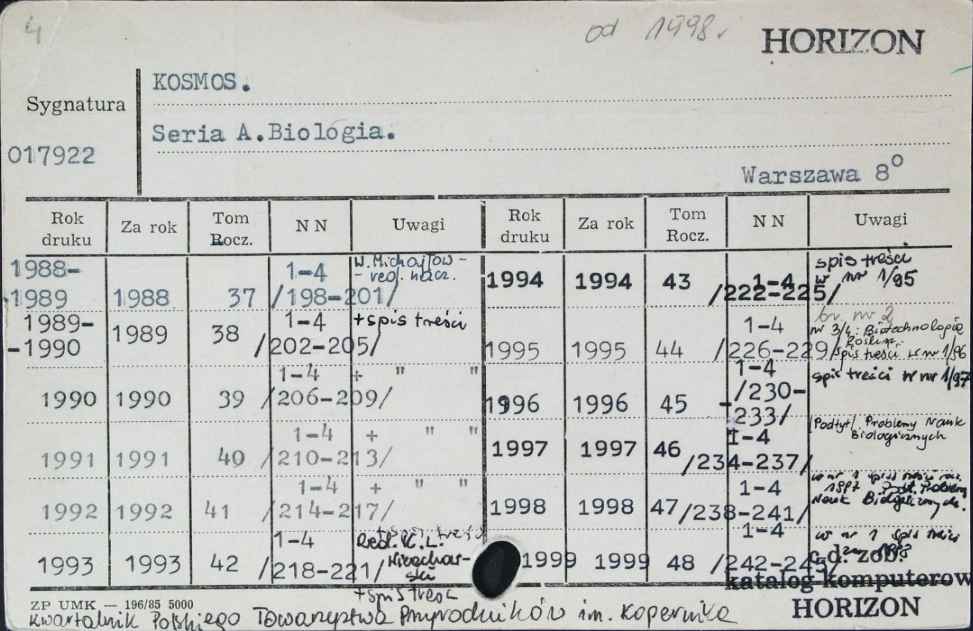 4
od 1998r
HORIZON
KOSMOS.
Sygnatura
Seria A.Biologia.
017922
Warszawa 8°
Rok druku Za rok Tom Rocz. N N Uwagi Rok druku Za rok Tom Rocz. N N Uwagi
1988-1989 1988 37 1-4 /198-201/ W. Michajłow - - red. nacz.
1989- -1990 1989 38 1-4 /202-205/ +spis treści
1990 1990 39 1-4 /206-209/ + " "
1991 1991 40 1-4 /210-213/ + " "
1992 1992 41 1-4 /214-217/ + " "
+spis treści
1993 1993 42 1-4 /218-221/ Red. K.L. +spis treśc
1994 1994 43 1-4 /222-225/ spis treści w nr 1/95
br. nr 2
1995 1995 44 1-4 /226-229/ nr 3/4: Biotechnologia Roślin. spis treści w nr 1/96
1996 1996 45 1-4 /230-233/ spis treści w nr 1/97
1997 1997 46 1-4 /234-237/ Podtyt. Problemy Nauk Biologicznych
1998 1998 47 1-4 /238-241/ w nr 1 spis treści 1997 Problemy Nauk Biologicznych.
1999 1999 48 1-4 /242-245/ w nr 1 spis treści
c.d. zob.
katalog komputerow
HORIZON
ZP UMK — 196/85 5000
Kwartalnik Polskiego Towarzystwa Przyrodników im. Kopernika